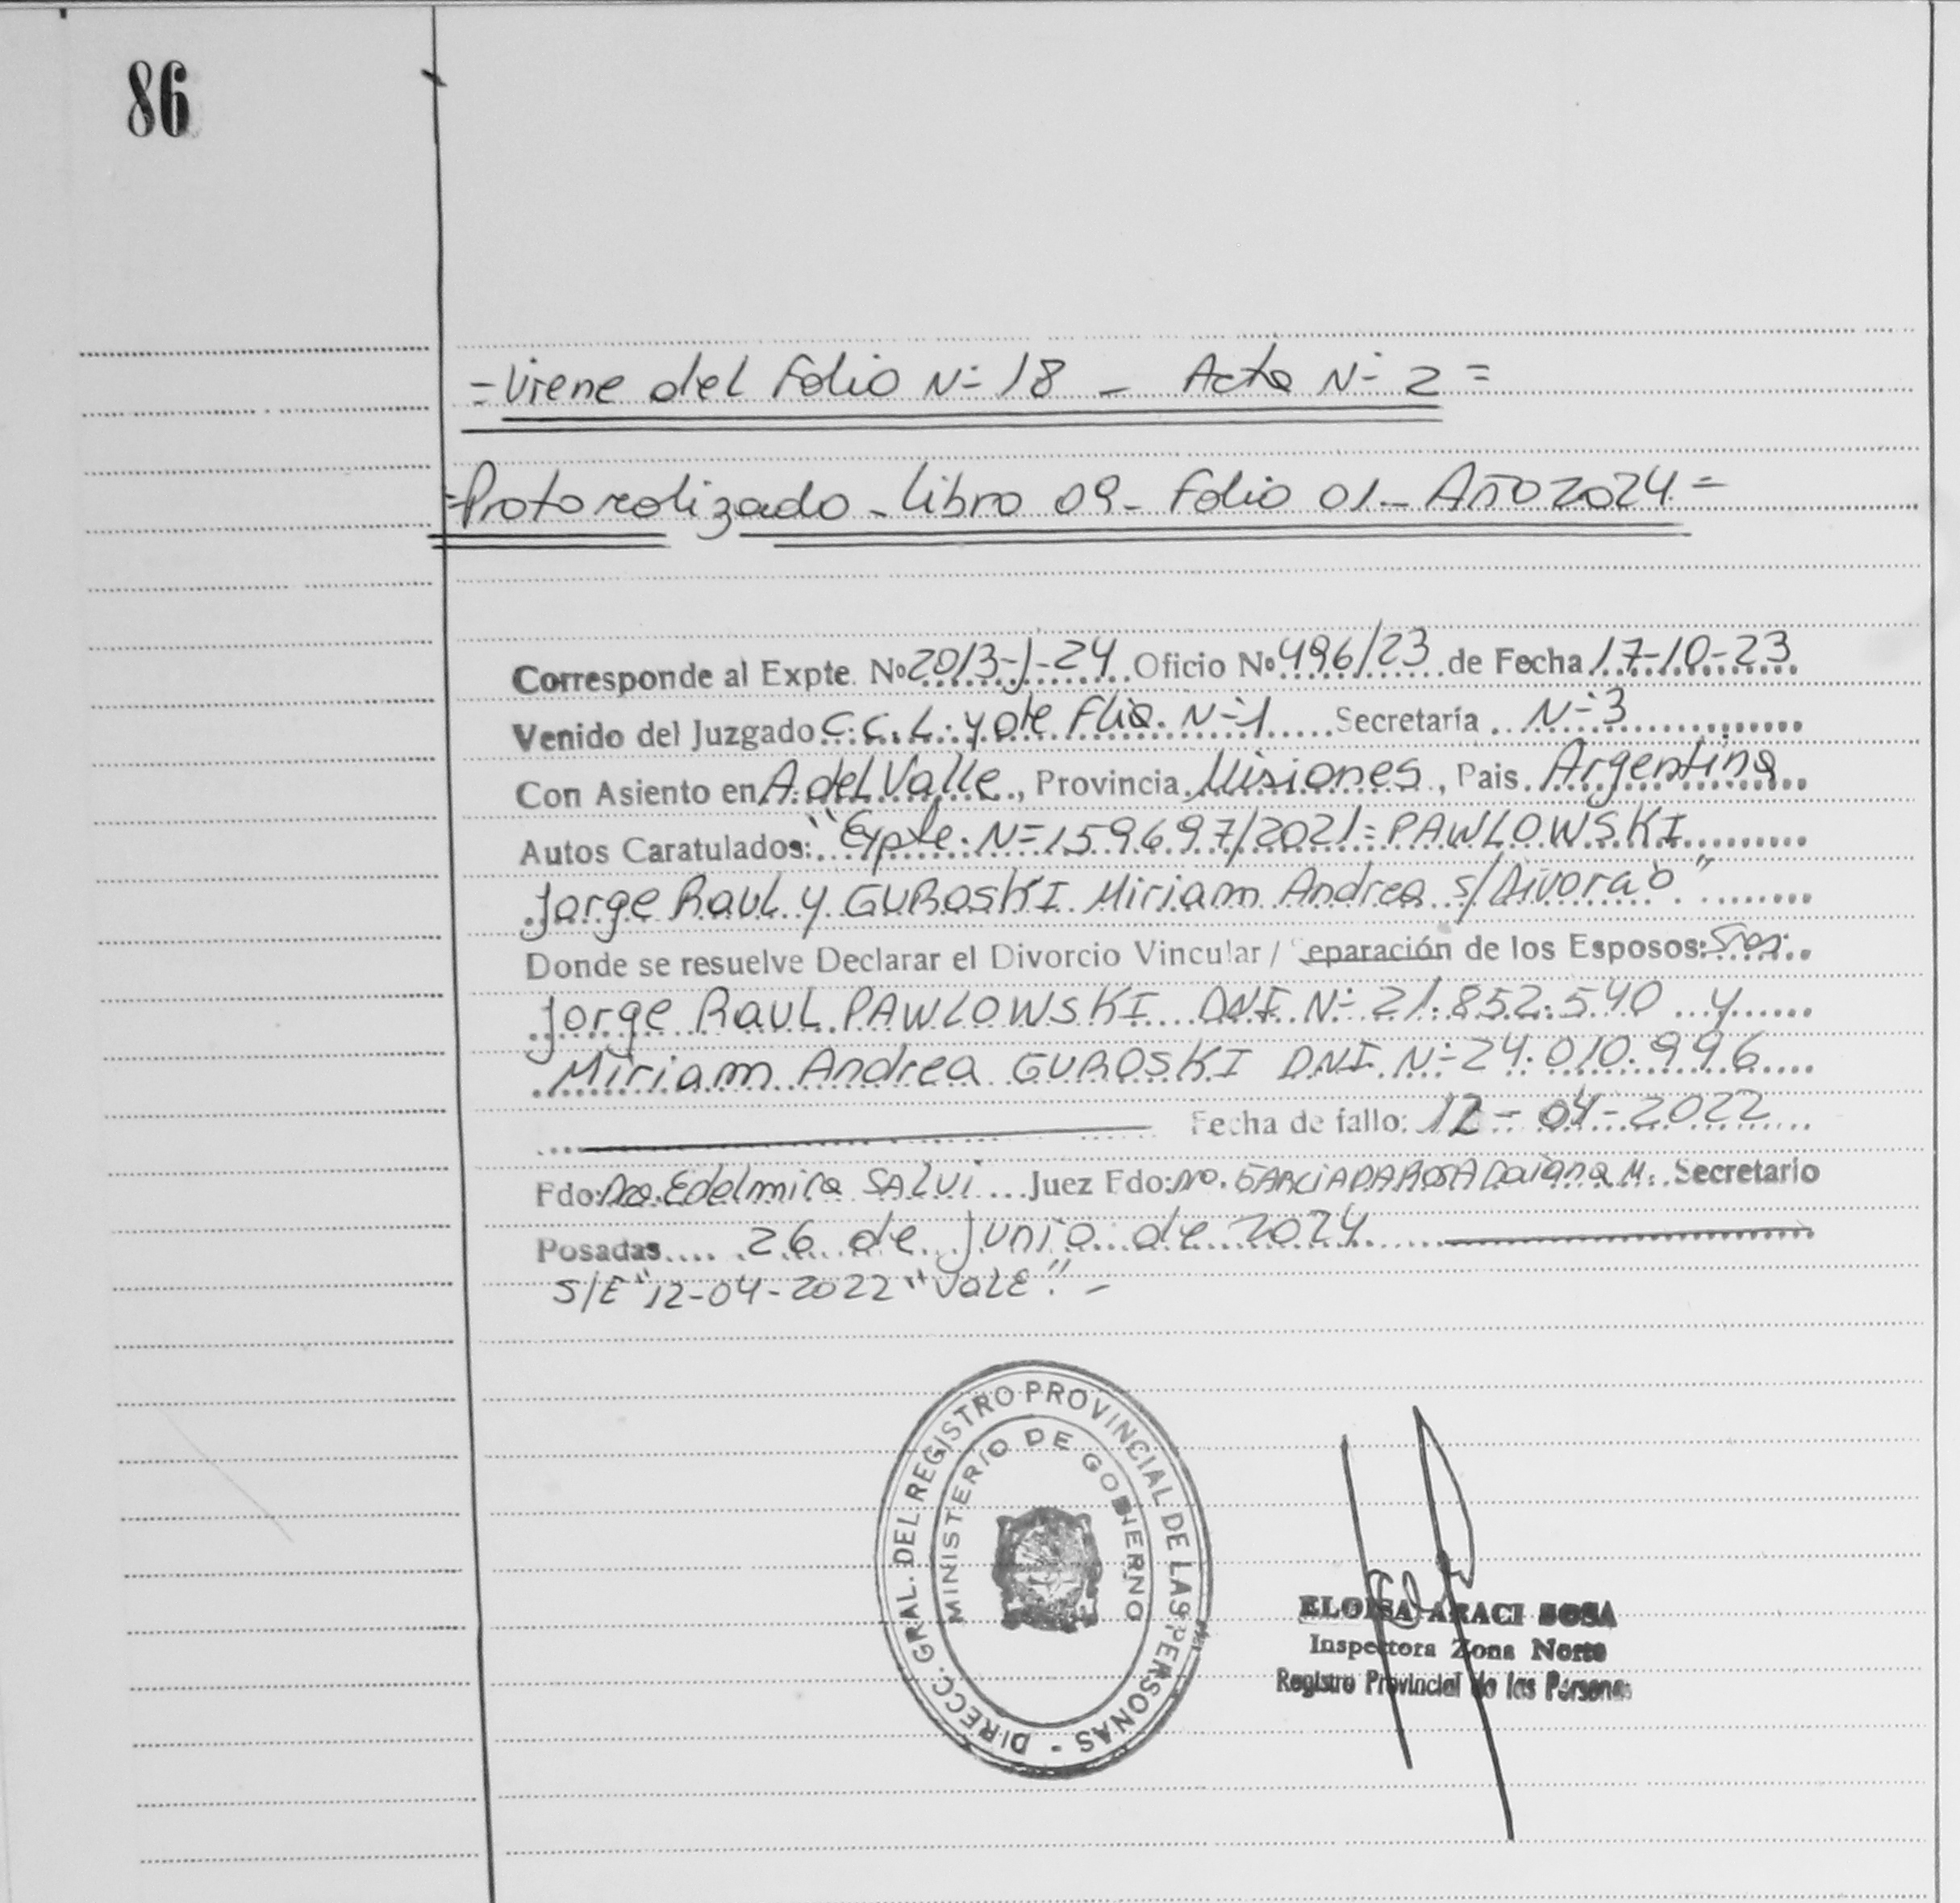 86
=Viene del Folio N- 18 - Acta N- 2=
=Protocolizado - Libro 09 - Folio 01 - Año 2024=
Corresponde al Expte. Nº 2013-J-24 Oficio Nº 496/23 de Fecha 17-10-23
Venido del Juzgado C.C.L. y de Flia. N-1 Secretaría N-3
Con Asiento en A. del Valle, Provincia Misiones, Pais. Argentina
Autos Caratulados: "Expte. N-159697/2021- PAWLOWSKI
Jorge Raul y GUROSKI Miriam Andrea s/Divorcio"
Donde se resuelve Declarar el Divorcio Vincular / Separación de los Esposos: Sres.
Jorge Raul PAWLOWSKI DNI. N- 21.852.540 y
Miriam Andrea GUROSKI DNI. N- 24.010.996
Fecha de fallo: 12-04-2022
Fdo: Dra. Edelmira SALVI Juez Fdo: Dra. GARCIA DA ROSA Daiana M. Secretario
Posadas 26 de Junio de 2024
S/E "12-04-2022" "Vale". -
DIRECC. GRAL. DEL REGISTRO PROVINCIAL DE LAS PERSONAS -
MINISTERIO DE GOBIERNO
ELOISA ARACI SOSA
Inspectora Zona Norte
Registro Provincial de las Personas